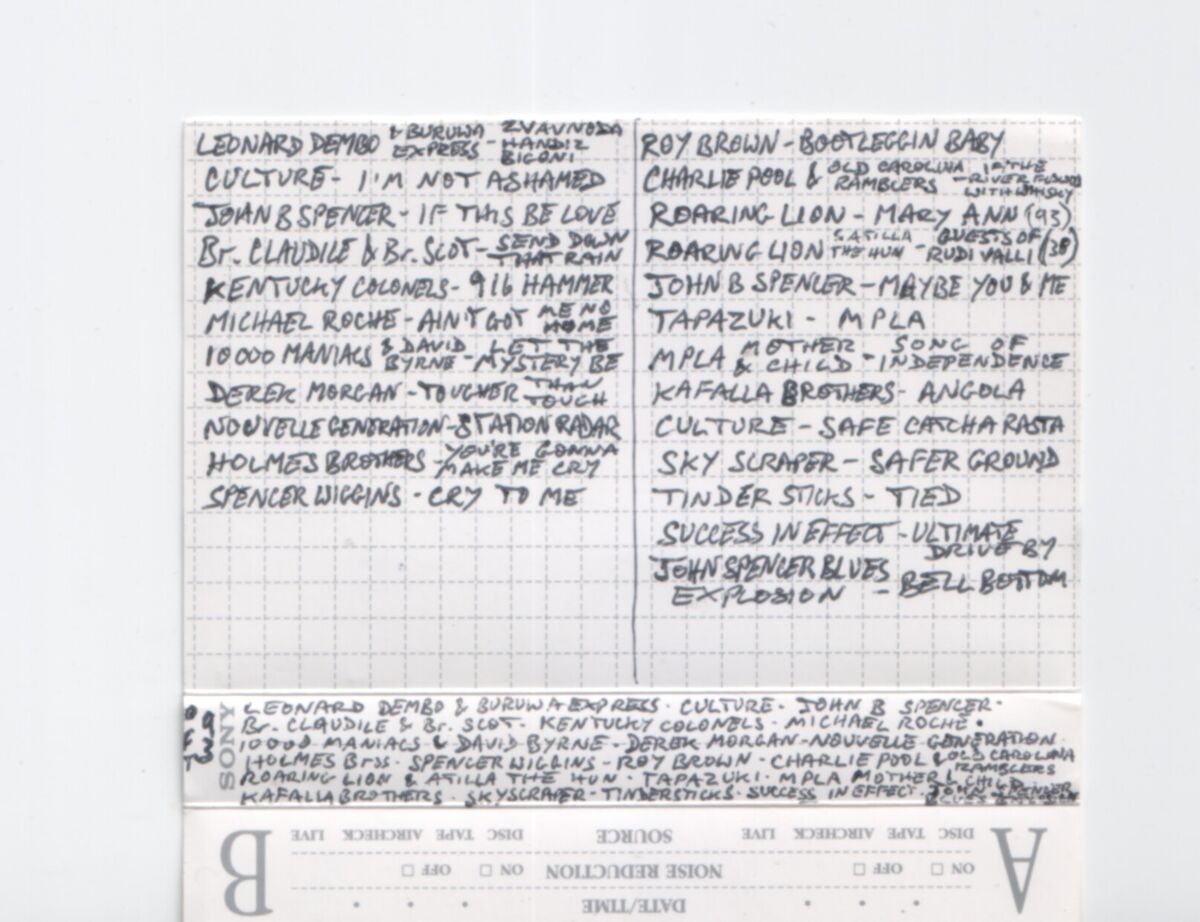 LEONARD DEMBO & BURUWA EXPRESS - ZVAVNODA HANDIZ BIGONI
CULTURE - I'M NOT ASHAMED
JOHN B SPENCER - IF THIS BE LOVE
Br. CLAUDILE & Br. SCOT - SEND DOWN THAT RAIN
KENTUCKY COLONELS - 9 lb HAMMER
MICHAEL ROCHE - AIN'T GOT ME NO HOME
10000 MANIACS & DAVID BYRNE - LET THE MYSTERY BE
DEREK MORGAN - TOUGHER THAN TOUCH
NOUVELLE GENERATION - STATION RADAR
HOLMES BROTHERS - YOU'RE GONNA MAKE ME CRY
SPENCER WIGGINS - CRY TO ME
ROY BROWN - BOOTLEGGIN BABY
CHARLIE POOL & OLD CAROLINA RAMBLERS - IF THE RIVER WITH WHISKY
ROARING LION - MARY ANN (93)
ROARING LION & ATILLA THE HUN - GUESTS OF RUDI VALLI (38)
JOHN B SPENCER - MAYBE YOU & ME
TAPAZUKI - MPLA
MPLA MOTHER & CHILD - SONG OF INDEPENDENCE
KAFALLA BROTHERS - ANGOLA
CULTURE - SAFE CATCHA RASTA
SKY SCRAPER - SAFER GROUND
TINDER STICKS - TIED
SUCCESS IN EFFECT - ULTIMATE
DRIVE BY
JOHN SPENCER BLUES
EXPLOSION - BELL BOTTOM
SONY
LEONARD DEMBO & BURUWA EXPRESS · CULTURE · JOHN B SPENCER ·
Br. CLAUDILE & Br. SCOT · KENTUCKY COLONELS · MICHAEL ROCHE ·
10000 MANIACS & DAVID BYRNE · DEREK MORGAN - NOUVELLE GENERATION ·
HOLMES Bros · SPENCER WIGGINS - ROY BROWN · CHARLIE POOL & OLD CAROLINA RAMBLERS
ROARING LION & ATILLA THE HUN · TAPAZUKI · MPLA MOTHER & CHILD
KAFALLA BROTHERS · SKYSCRAPER · TINDERSTICKS · SUCCESS IN EFFECT · JOHN SPENCER
A B
DISC TAPE AIRCHECK LIVE SOURCE DISC TAPE AIRCHECK LIVE
ON OFF NOISE REDUCTION ON OFF
DATE/TIME